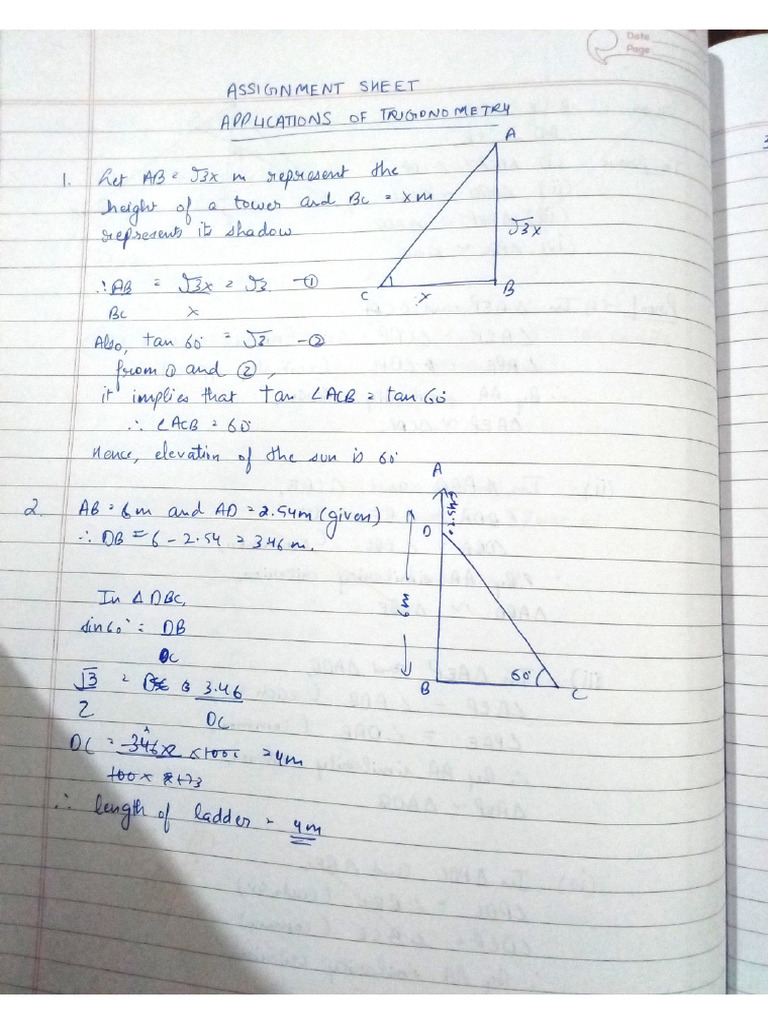 Date
Page
ASSIGNMENT SHEET
APPLICATIONS OF TRIGONOMETRY
1. Let AB = √3x m represent the
height of a tower and BC = x m
represents it shadow
A
√3x
C x B
∴ AB = √3x = √3 - ①
BC x
Also, tan 60° = √3 - ②
from ① and ②,
it implies that tan ∠ACB = tan 60°
∴ ∠ACB = 60°
Hence, elevation of the sun is 60°
2. AB = 6m and AD = 2.54m (given)
∴ DB = 6 - 2.54 = 346 m.
A
2.54m
D
6m
B 60° C
In △DBC,
sin60° = DB
DC
√3 = 3.46
2 DC
DC = 346x2 x1000 = 4m
100x 1.73
∴ length of ladder = 4m